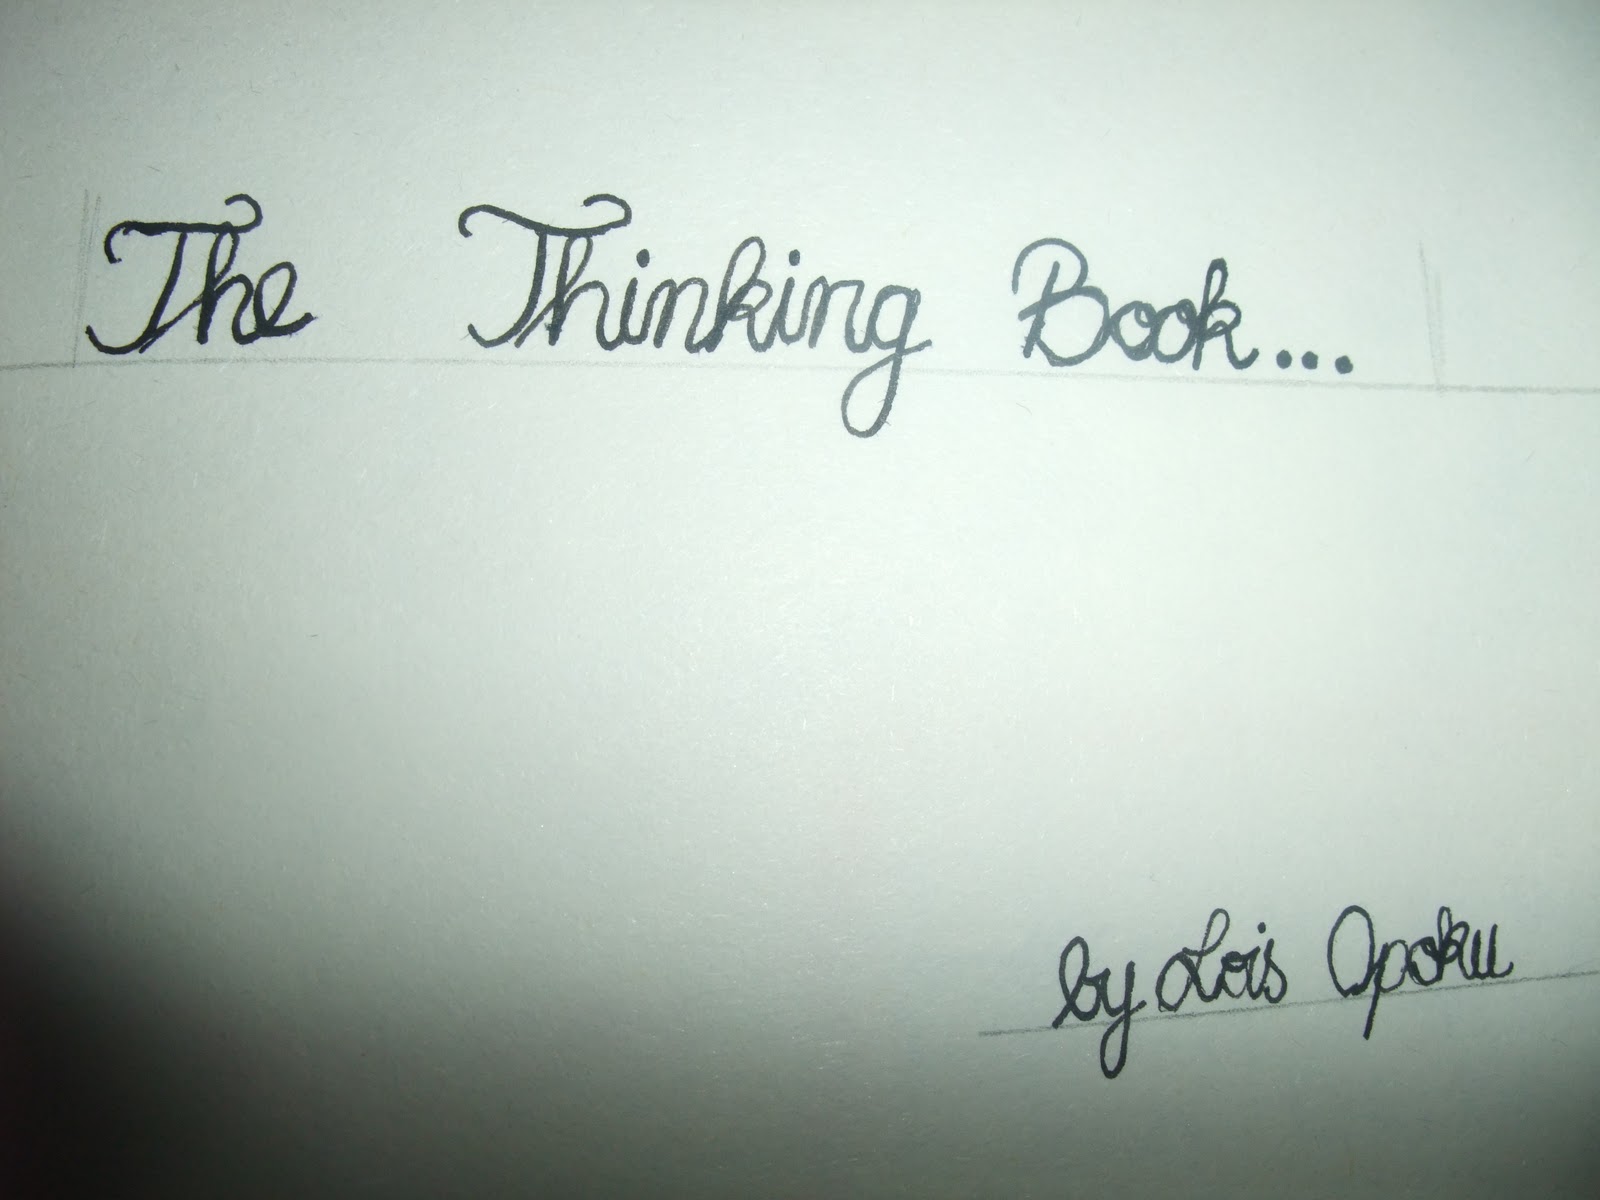 The Thinking Book...
by Lois Opoku